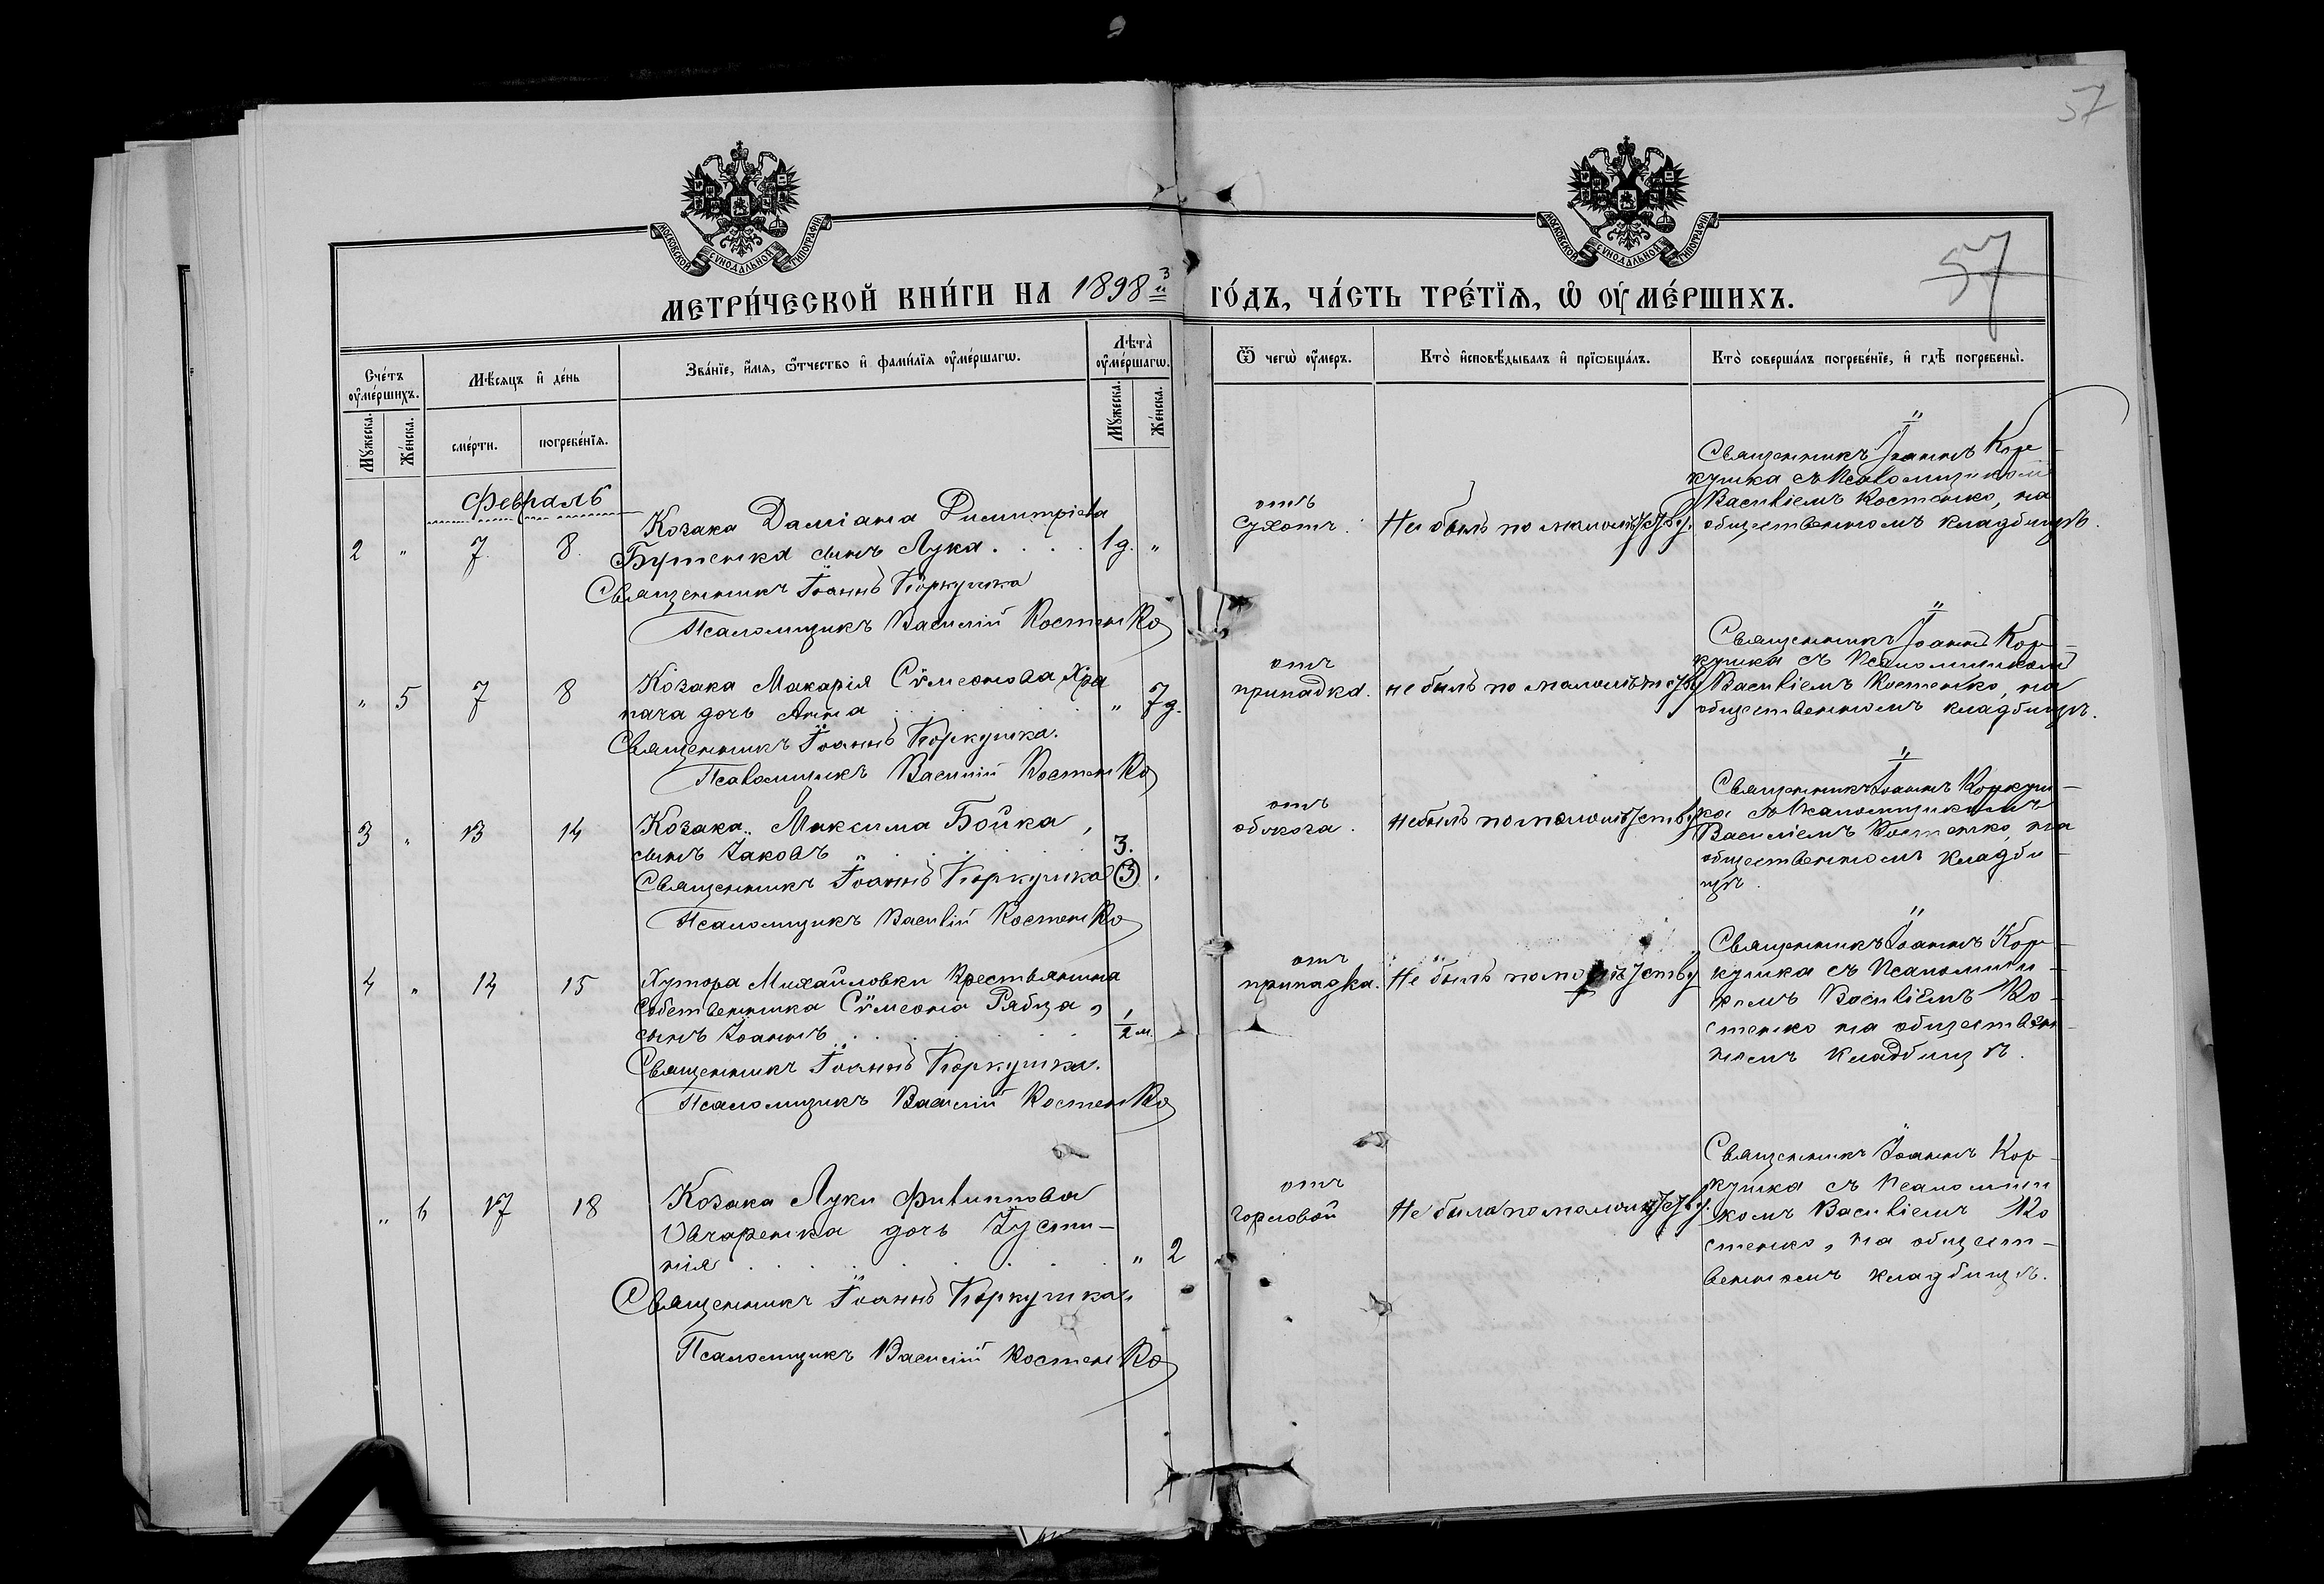 57
57
МОСКОВСКОЙ СУНОДАЛЬНОЙ ТИПОГРАФІИ
МОСКОВСКОЙ СУНОДАЛЬНОЙ ТИПОГРАФІИ
МЕТРИ́ЧЕСКОЙ КНИ́ГИ НА 1898 й ГО́ДЪ, ЧА́СТЬ ТРЕ́ТЇѦ, Ѡ ОУМЕ́РШИХЪ.
Сче́тъ оуме́ршихъ.
Мꙋжеска.
Же́нска.
Мѣ́сяцъ и де́нь
сме́рти.
погребе́нїѧ.
Зва́нїе, и́мѧ, ѻ҆́тчество и фами́лїѧ оуме́ршагѡ.
Лѣта̀ оуме́ршагѡ.
Мꙋжеска.
Же́нска.
Ѿ чегѡ̀ оу́меръ.
Кто̀ и҆сповѣ́дывалъ и҆ прїѡбща́лъ.
Кто̀ соверша́лъ погребе́нїе, и҆ гдѣ̀ погребены̀.
Февраль
2 " 7. 8.
Козака Даміана Димитріева
Бутенка сынъ Лука . . . . 1 д. "
Священникъ Іоаннъ Коркушка
Псаломщикъ Василій Костенко
отъ
сухотъ.
Не былъ по малолѣтству.
Священникъ Іоаннъ Кор-
кушка съ Псаломщикомъ
Василіемъ Костенко, на
общественномъ кладбищѣ.
" 5 7 8
Козака Макарія Сѵмеонова Хра
пача дочь Анна . . . . " 7 д.
Священникъ Іоаннъ Коркушка.
Псаломщикъ Василій Костенко
отъ
припадка.
не былъ по малолѣтству
Священникъ Іоаннъ Кор-
кушка съ Псаломщикомъ
Василіемъ Костенко, на
общественномъ кладбищѣ.
3 " 13 14
Козака Максима Бойка,
сынъ Іаковъ . . . . 3.
Священникъ Іоаннъ Коркушка 3
Псаломщикъ Василій Костенко
отъ
обжога.
Не былъ по малолѣтству
Священникъ Іоаннъ Коркуш-
ка съ Псаломщикомъ
Василіемъ Костенко, на
общественномъ кладби-
щѣ.
4 " 14 15
Хутора Михайловки Крестьянина
Собственника Сѵмеона Рябца,
сынъ Іоаннъ . . . . 1/2 м.
Священникъ Іоаннъ Коркушка.
Псаломщикъ Василій Костенко
отъ
припадка.
Не былъ по малолѣтству
Священникъ Іоаннъ Кор-
кушка съ Псаломщи-
комъ Василіемъ Ко-
стенко на обществен-
номъ кладбищѣ.
" 6 17 18
Козака Луки Филиппова
Овчаренка дочь Іусти-
нія . . . . " 2
Священникъ Іоаннъ Коркушка
Псаломщикъ Василій Костенко
отъ
горловой
Не была по малолѣтству.
Священникъ Іоаннъ Кор-
кушка съ Псаломщи
комъ Василіемъ Ко
стенко, на общест-
венномъ кладбищѣ.